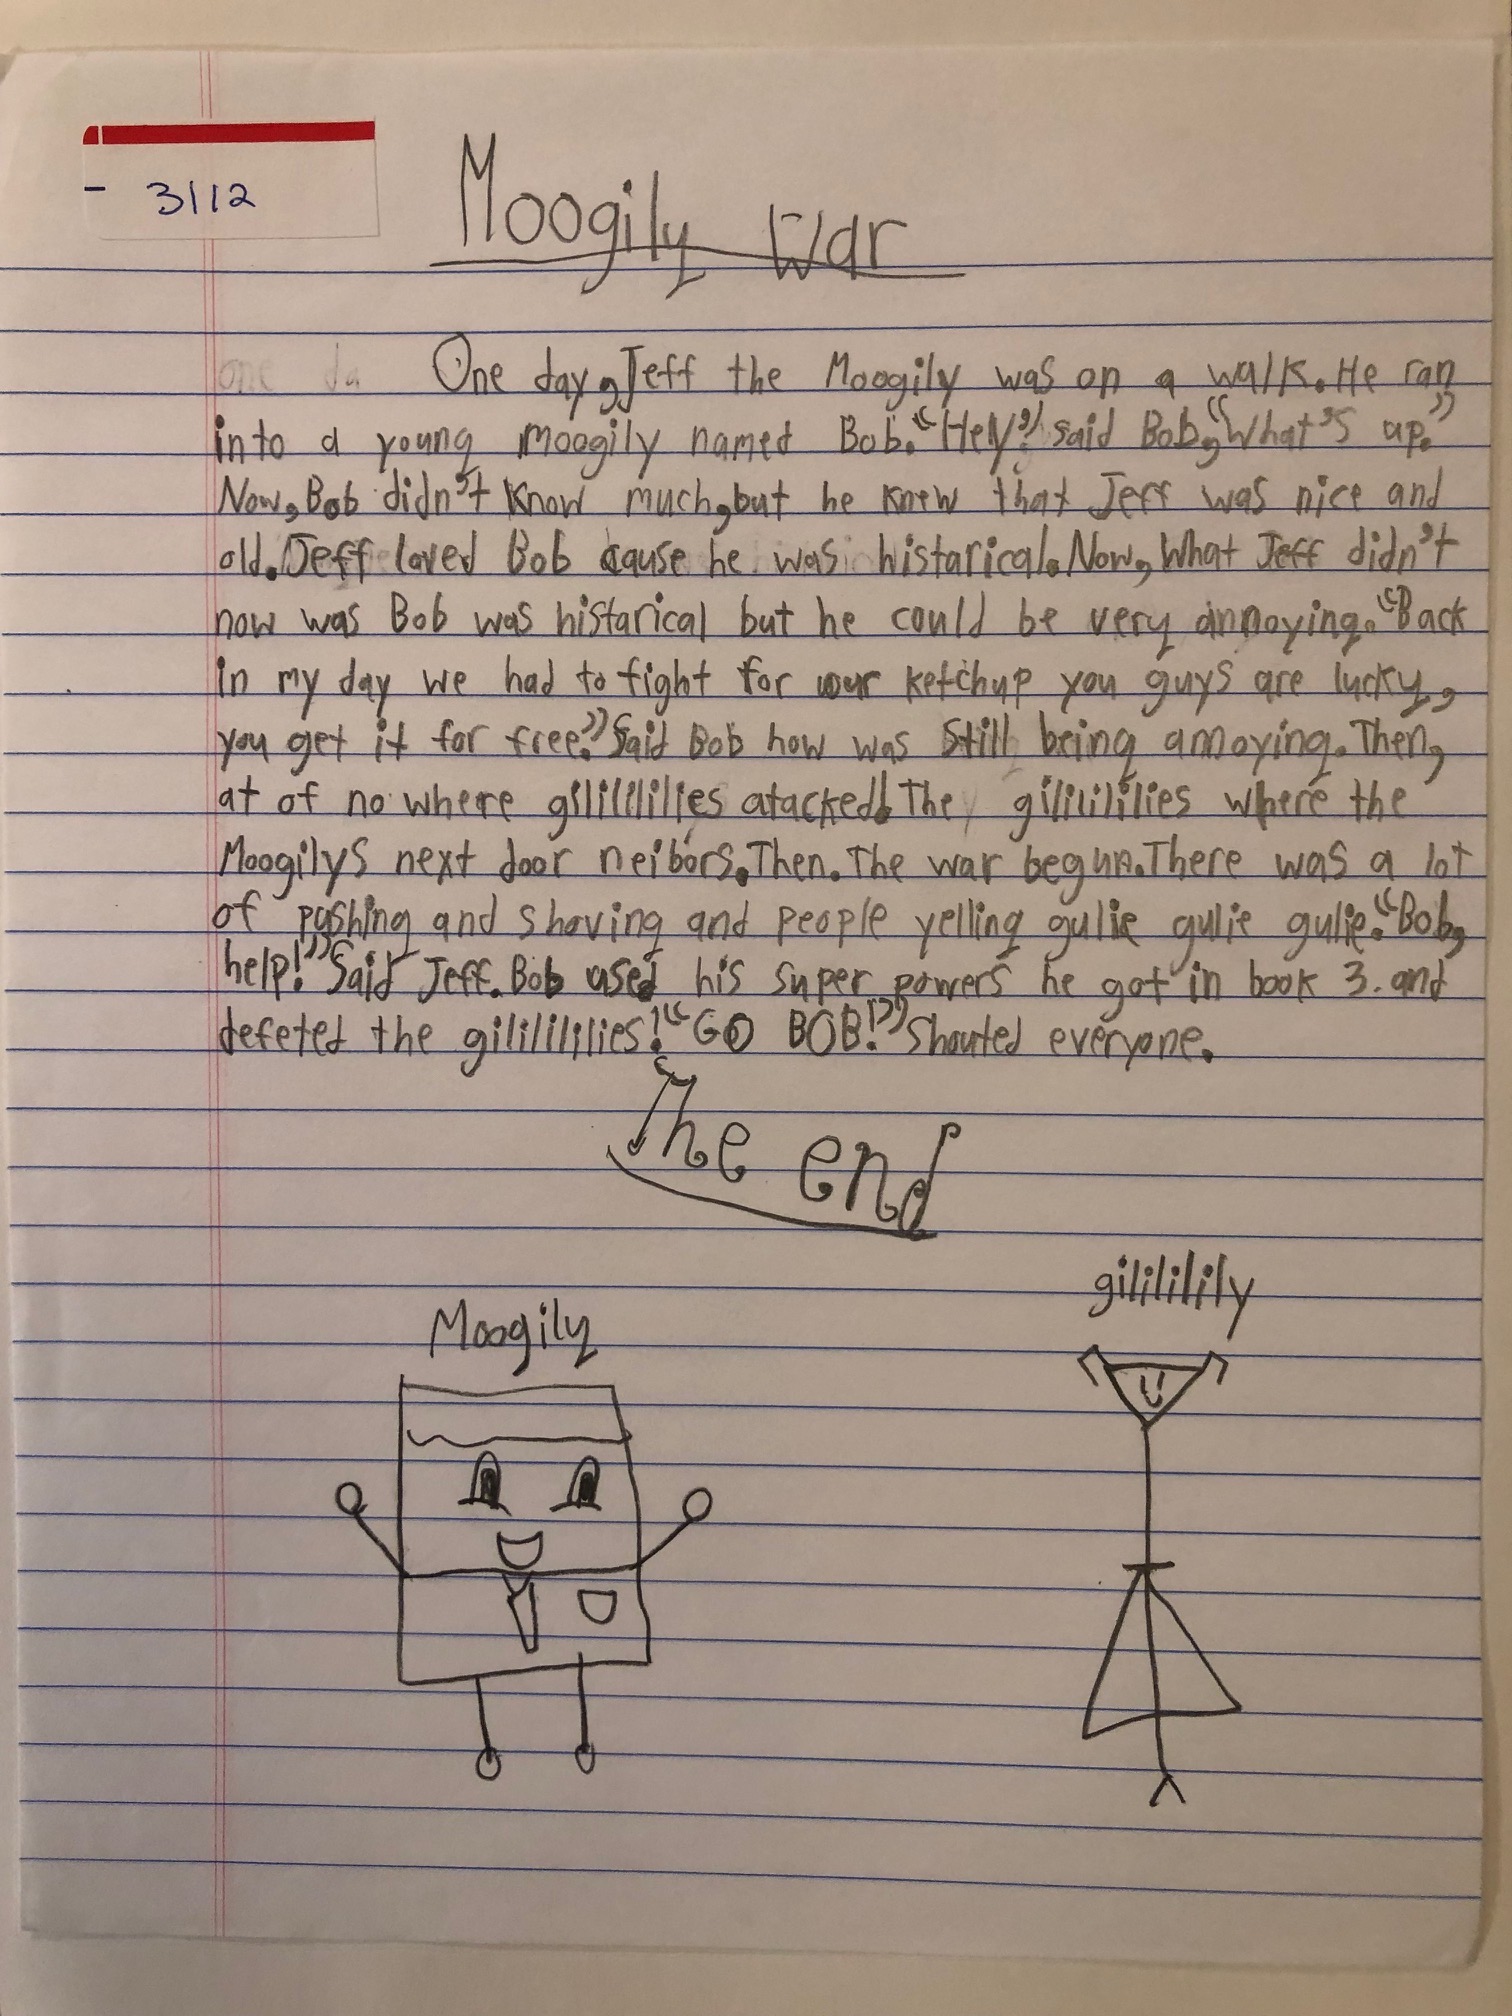 - 3112
Moogily War
one da One day, Jeff the Moogily was on a walk. He ran
into a young moogily named Bob. "Hey!" said Bob, "What's up."
Now, Bob didn't know much, but he knew that Jeff was nice and
old. Jeff loved Bob cause he was histarical. Now, What Jeff didn't
now was Bob was histarical but he could be very annoying. "Back
in my day we had to fight for our ketchup you guys are lucky,
you get it for free." Said Bob how was still being annoying. Then,
at of no where gilililililies atacked! The gilililililies where the
Moogilys next door neibors. Then. The war begun. There was a lot
of pushing and shoving and people yelling gulie gulie gulie. "Bob,
help!" Said Jeff. Bob used his super powers he got in book 3. and
defeted the gilililililies! "GO BOB!" Shouted everyone.
The end
gililililily
Moogily